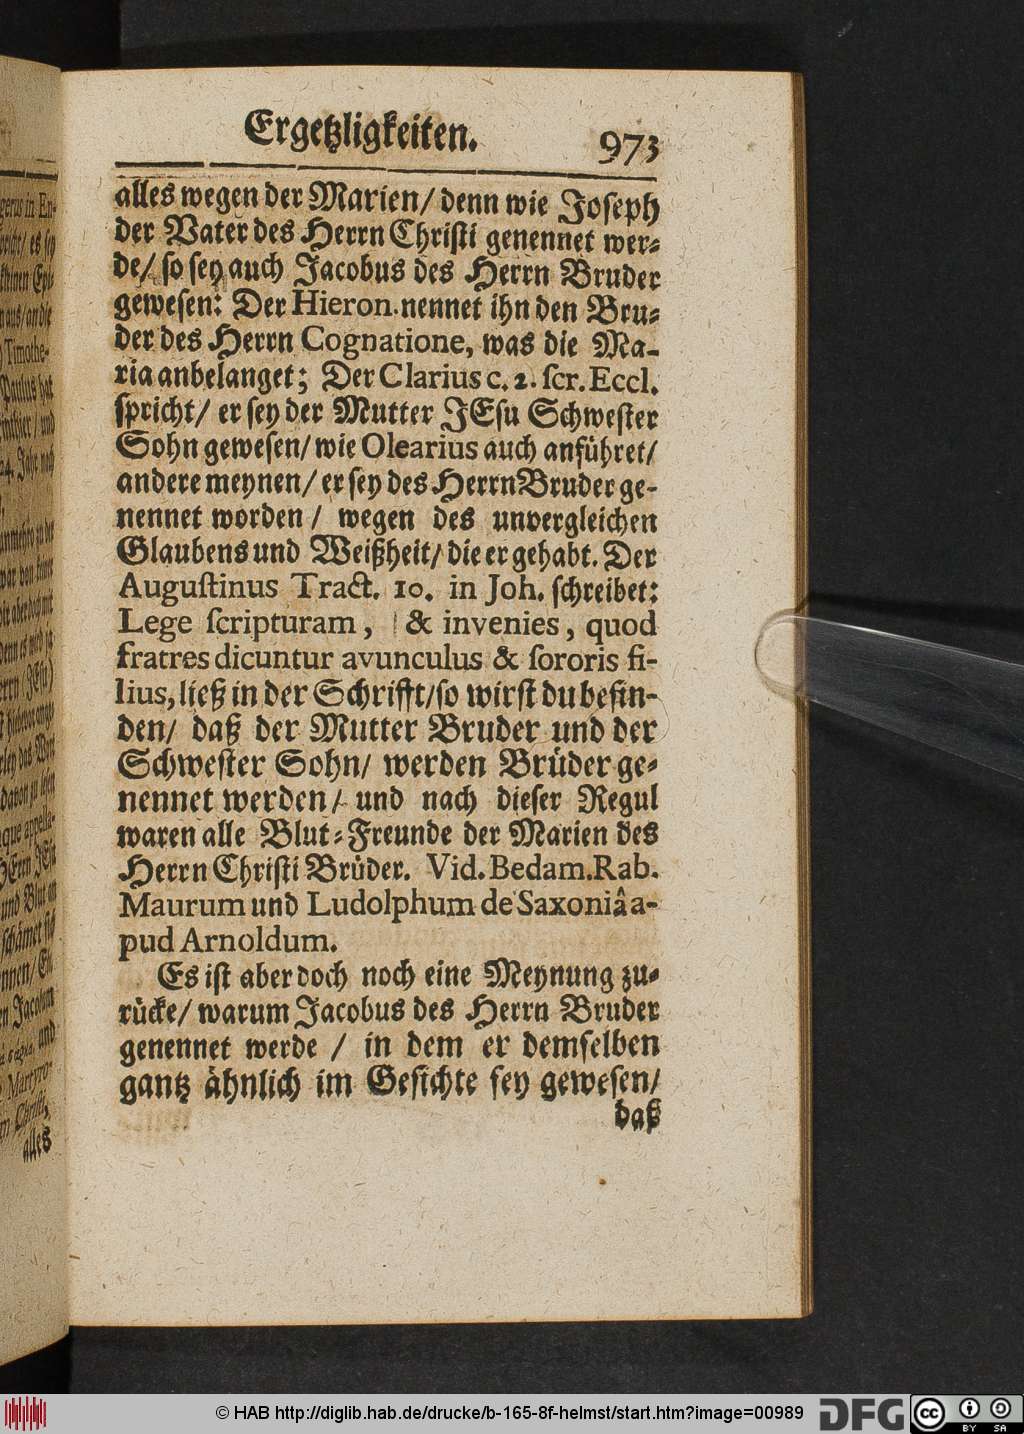 Ergetzligkeiten. 973
alles wegen der Marien/ denn wie Joseph
der Vater des Herrn Christi genennet wer⸗
de/ so sey auch Jacobus des Herrn Bruder
gewesen: Der Hieron. nennet ihn den Bru⸗
der des Herrn Cognatione, was die Ma-
ria anbelanget; Der Clarius c. 2. ſcr. Eccl.
spricht/ er sey der Mutter JEsu Schwester
Sohn gewesen/ wie Olearius auch anführet/
andere meynen/ er sey des Herrn Bruder ge-
nennet worden/ wegen des unvergleichen
Glaubens und Weißheit/ die er gehabt. Der
Auguſtinus Tract. 10. in Joh. schreibet:
Lege ſcripturam, & invenies, quod
fratres dicuntur avunculus & ſororis fi-
lius, ließ in der Schrifft/ so wirst du befin-
den/ daß der Mutter Bruder und der
Schwester Sohn/ werden Brüder ge⸗
nennet werden/ und nach dieser Regul
waren alle Blut⸗Freunde der Marien des
Herrn Christi Brüder. Vid. Bedam. Rab.
Maurum und Ludolphum de Saxoniâ a-
pud Arnoldum.
Es ist aber doch noch eine Meynung zu⸗
rücke/ warum Jacobus des Herrn Bruder
genennet werde / in dem er demselben
gantz ähnlich im Gesichte sey gewesen/
daß
alles
© HAB http://diglib.hab.de/drucke/b-165-8f-helmst/start.htm?image=00989
DFG
cc BY SA